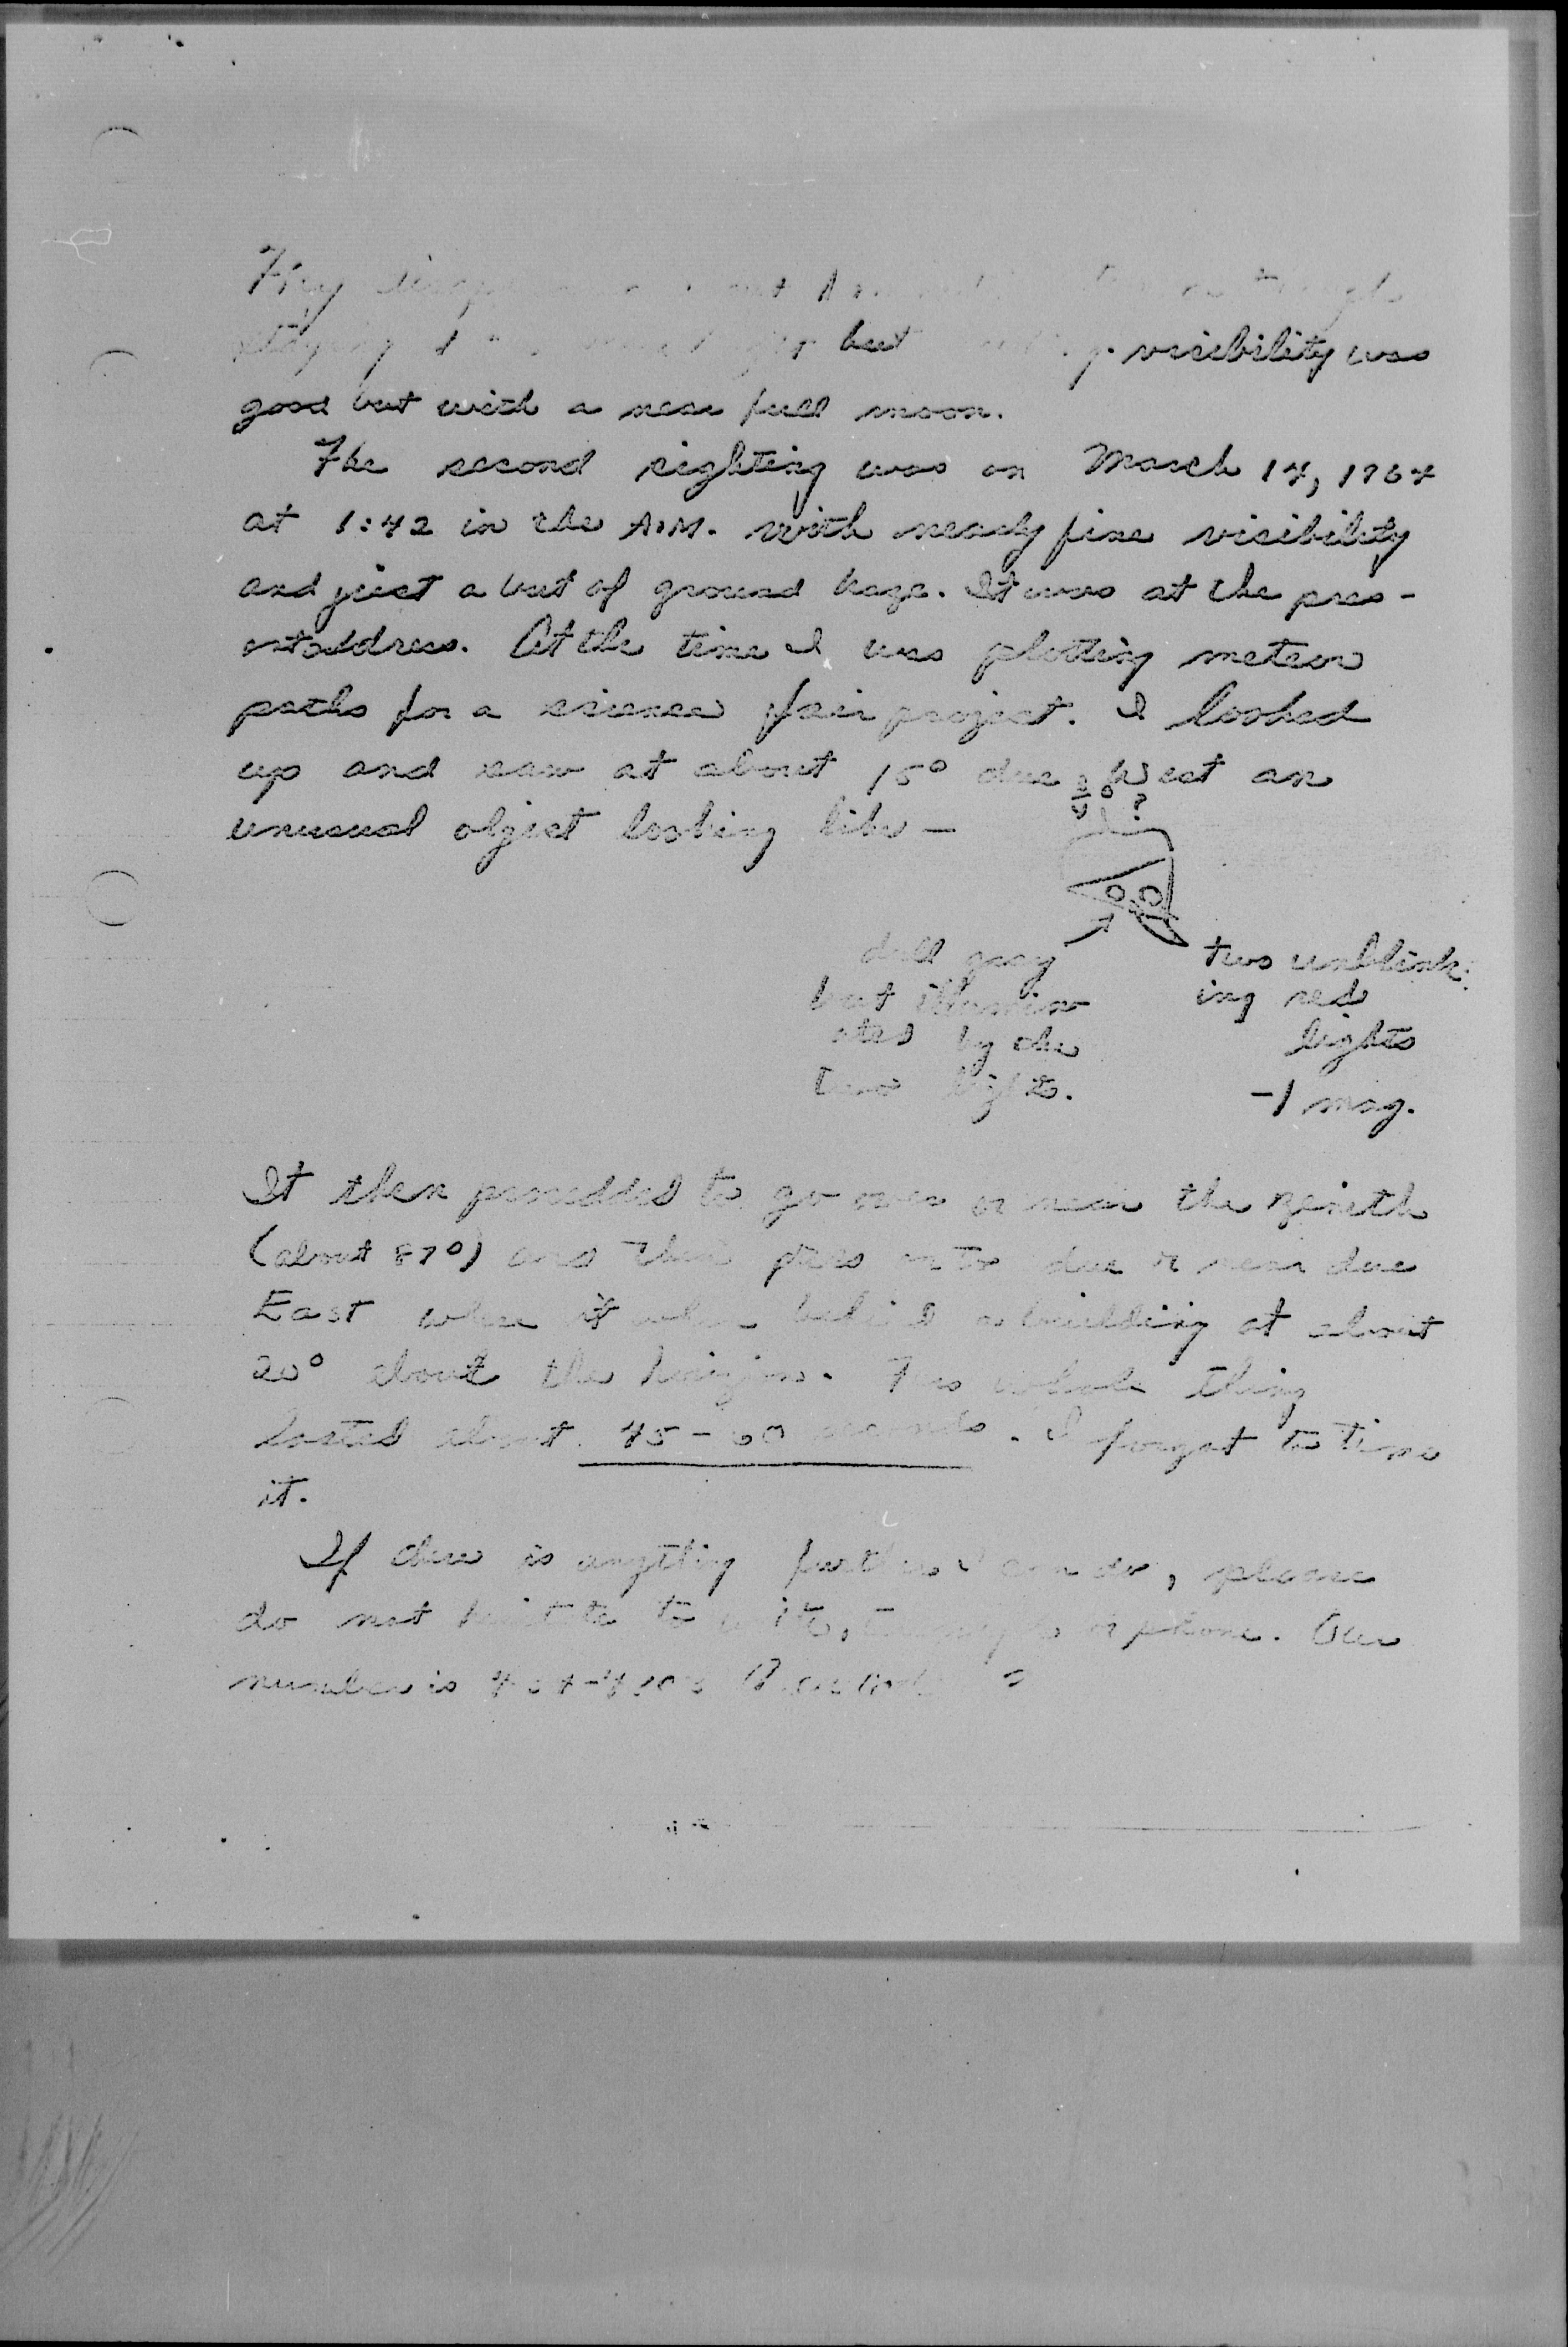 They
but visibility was
good but with a near full moon.
The second sighting was on March 14, 1964
at 1:42 in the A.M. with nearly fine visibility
and just a but of ground haze. It was at the pres-
ent address. At the time I was plotting meteor
paths for a science fair project. I looked
up and saw at about 15° due West an
unusual object looking like —
?
dull gray
but illumin
ated by the
two lights.
two unblink-
ing red
lights
-1 mag.
It then proceeded to go over or near the zenith
(about 87°) and then pass on to due or near due
East where it when behind a building at about
20° about the horizon. This whole thing
lasted about 45-60 seconds. I forgot to time
it.
If there is anything further I can do, please
do not to write, or phone. Our
number is